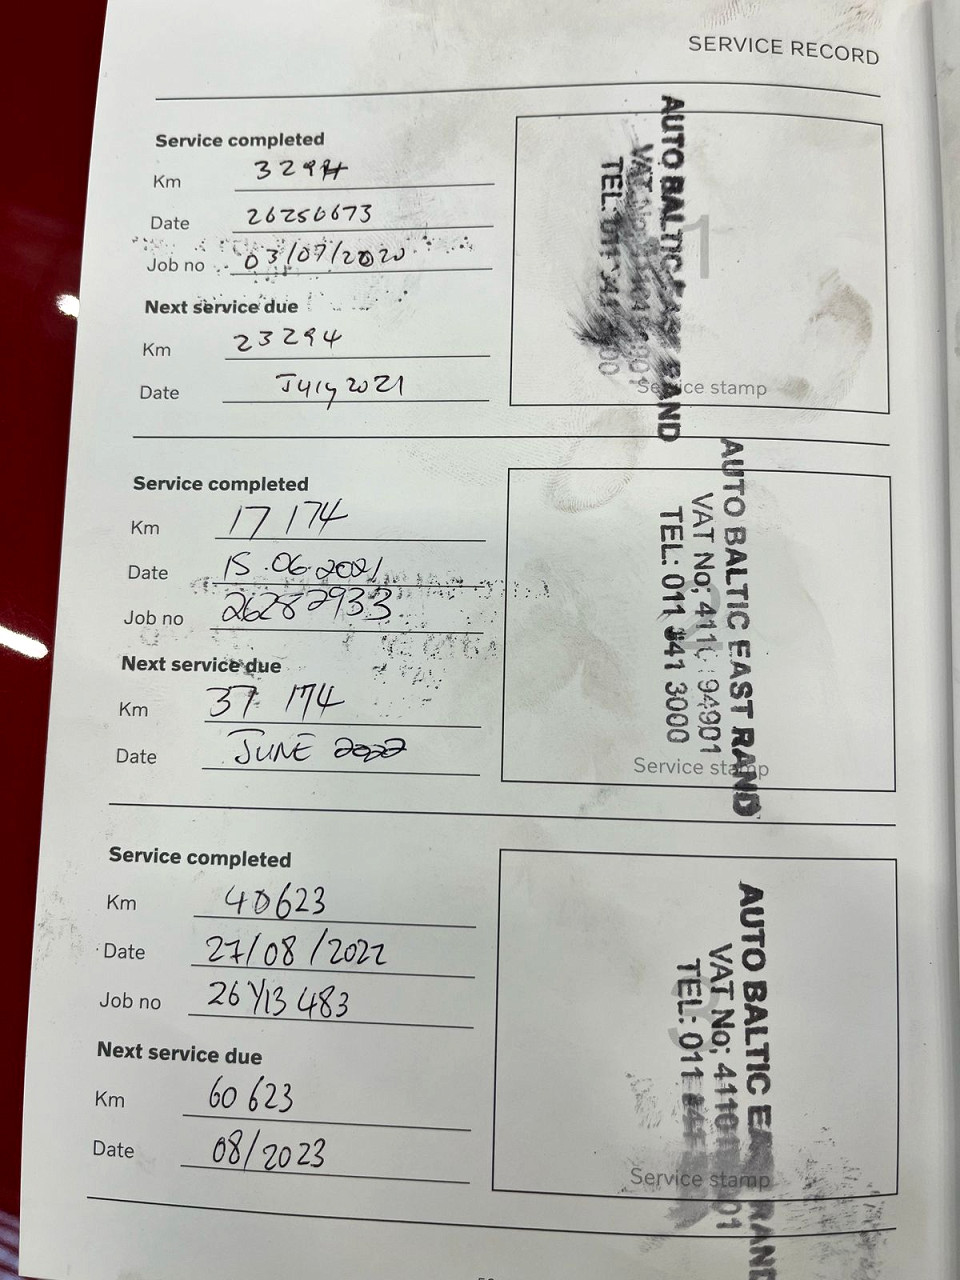 SERVICE RECORD
Service completed
Km 3294
Date 26256673
Job no 03/07/2020
Next service due
Km 23294
Date July 2021
1
AUTO BALTIC EAST RAND
VAT No
TEL: 011
Service stamp
Service completed
Km 17 174
Date 15.06.2021
Job no 26282933
Next service due
Km 37 174
Date JUNE 2022
2
AUTO BALTIC EAST RAND
VAT No; 4110194901
TEL: 011 841 3000
Service stamp
Service completed
Km 40623
Date 27/08/2022
Job no
Next service due
Km 60 623
Date 08/2023
3
AUTO BALTIC EAST RAND
VAT No;
TEL: 011
Service stamp